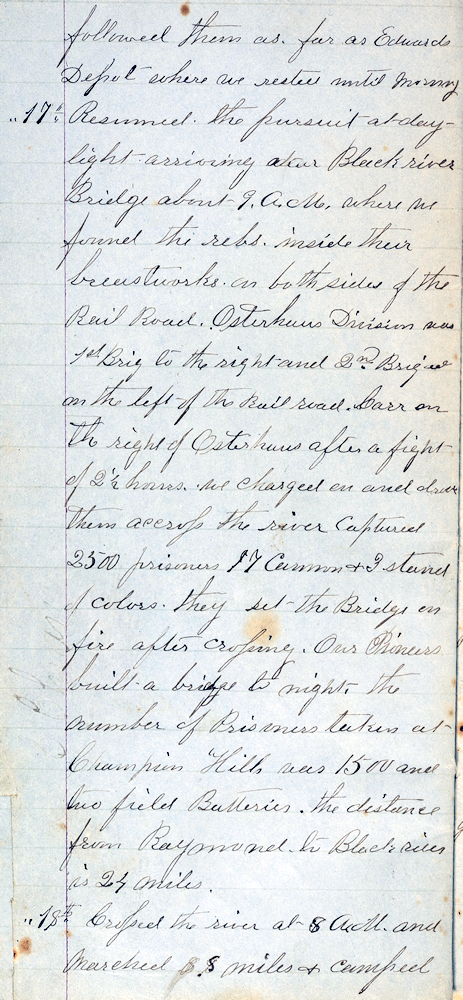 followed them as far as Edwards
Depot where we rested until Morning
„ 17th Resumed the pursuit at day-
light arriving near Black river
Bridge about 9. A.M. where we
found the rebs. inside their
breastworks. on both sides of the
Rail Road. Osterhaus Division was
1st Brig to the right and 2nd Brigade
on the left of the Rail road. Carr on
the right of Osterhaus after a fight
of 2½ hours. we charged on and drove
them accross the river Captured
2500 prisoners 17 Cannon & 3 stand
of colors. they set the Bridge on
fire after crossing. Our Pioneers
built a bridge to night. the
number of Prisoners taken at
Champion Hills was 1500 and
two field Batteries. the distance
from Raymond to Black river
is 24 miles.
„ 18th Crossed the river at 8 A.M. and
Marched 8 miles & camped